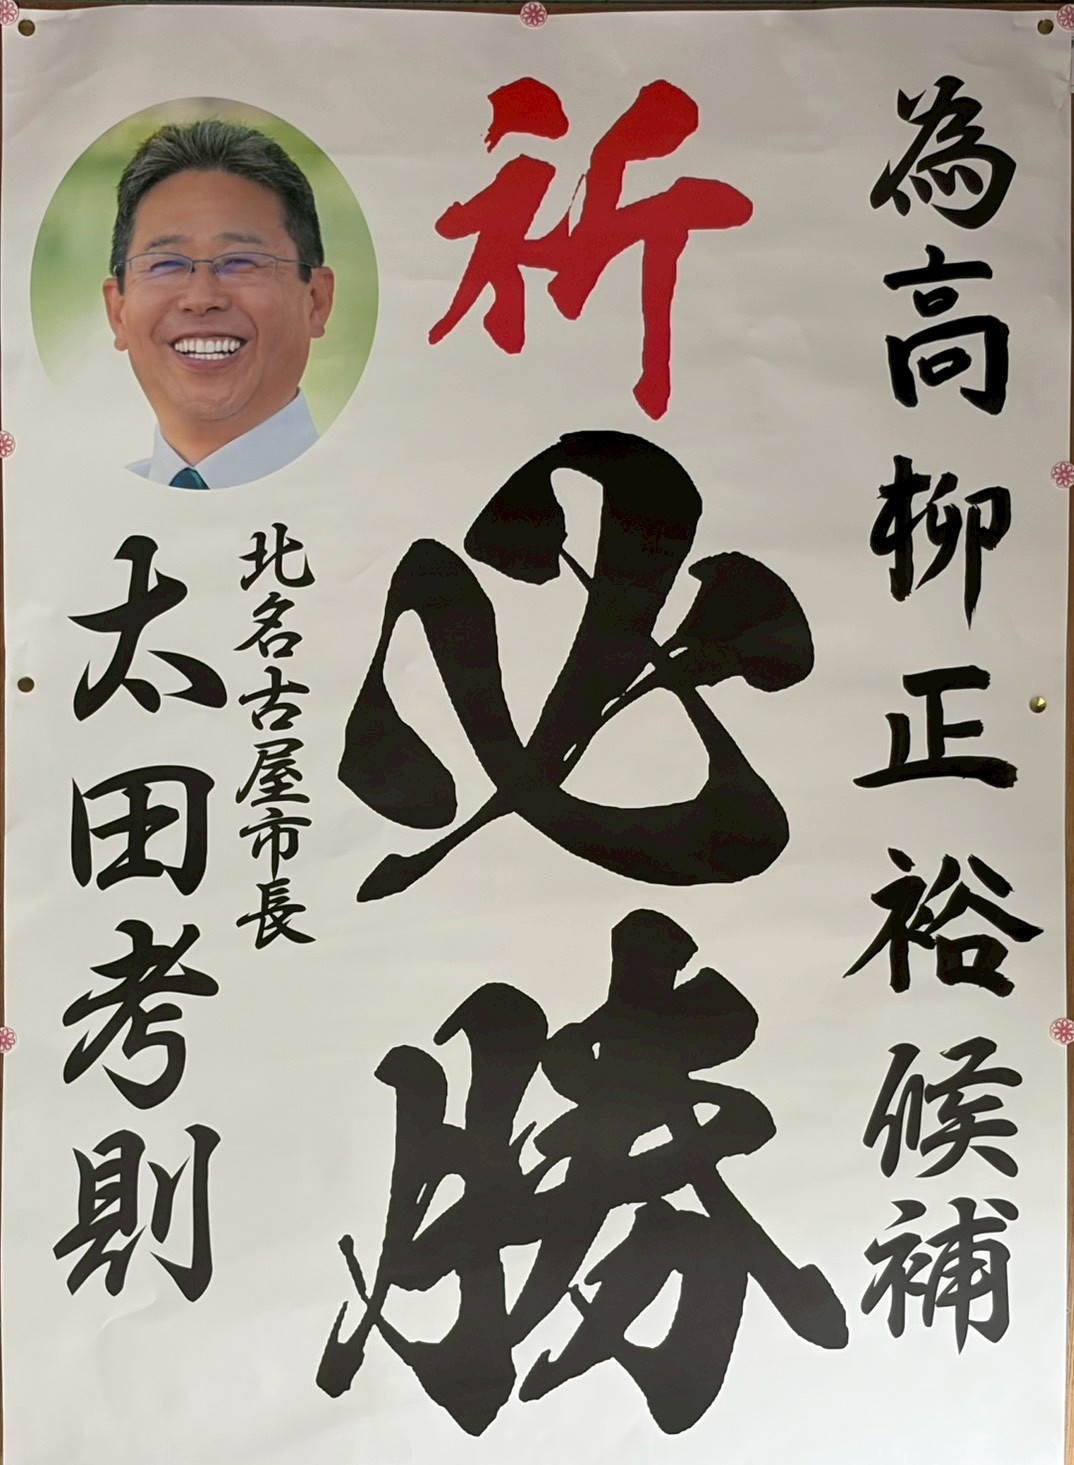 為高柳正裕候補
祈必勝
北名古屋市長
太田考則